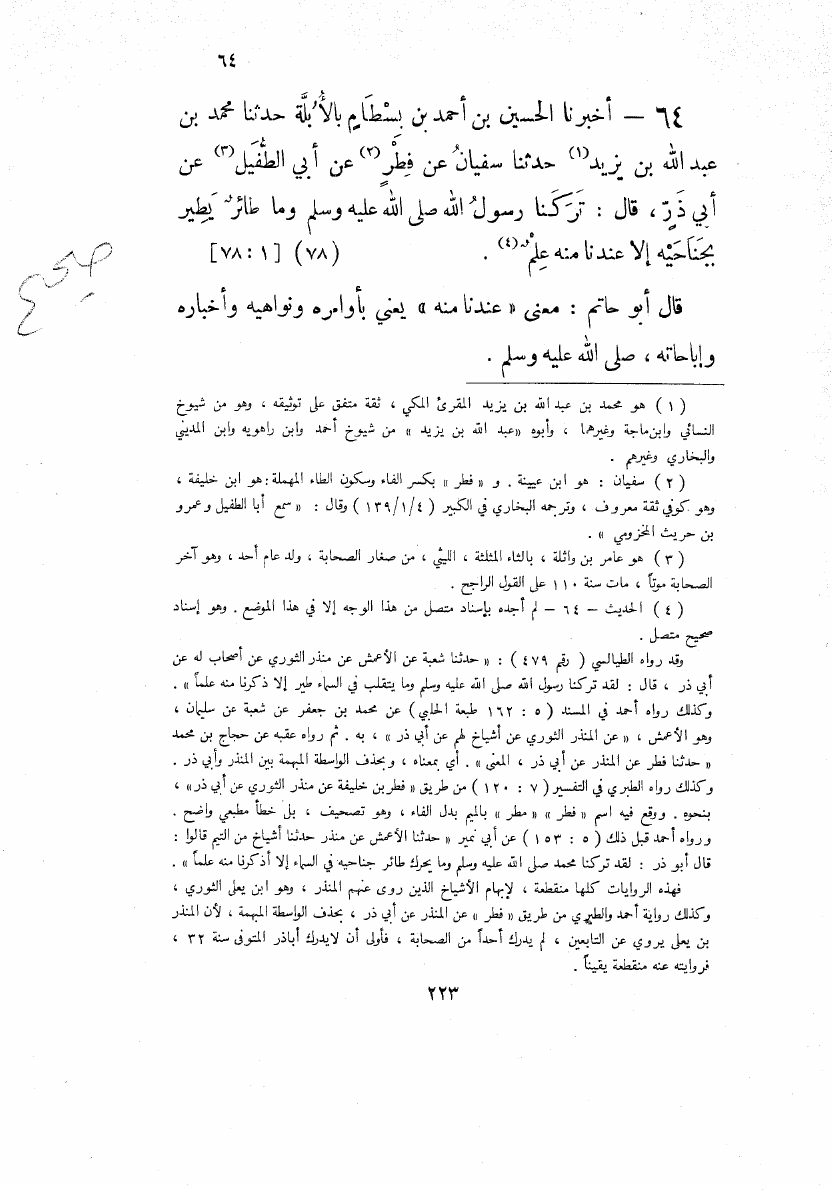 ٦٤
٦٤ — أخبرنا الحسين بن أحمد بن بِسْطَامٍ بالأُبُلَّة حدثنا محمد بن
عبد الله بن يزيد(١) حدثنا سفيانُ عن فِطْرٍ(٢) عن أبي الطُّفَيل(٣) عن
أبي ذَرٍّ ، قال : تَرَكَنا رسولُ الله صلى الله عليه وسلم وما طائرٌ يَطِير
بِجَنَاحَيْه إلا عندنا منه عِلمٌ(٤) . (٧٨) [١ : ٧٨]
صحيح
قال أبو حاتم : معنى « عندنا منه » يعني بأوامره ونواهيه وأخباره
وإباحاته ، صلى الله عليه وسلم .
(١) هو محمد بن عبد الله بن يزيد المقرئ المكي ، ثقة متفق على توثيقه ، وهو من شيوخ
النسائي وابن ماجة وغيرهما ، وأبوه «عبد الله بن يزيد » من شيوخ أحمد وابن راهويه وابن المديني
والبخاري وغيرهم .
(٢) سفيان : هو ابن عيينة . و « فطر » بكسر الفاء وسكون الطاء المهملة : هو ابن خليفة ،
وهو كوفي ثقة معروف ، وترجمه البخاري في الكبير (٤/١/١٣٩) وقال : « سمع أبا الطفيل وعمرو
بن حريث المخزومي » .
(٣) هو عامر بن واثلة ، بالثاء المثلثة ، الليثي ، من صغار الصحابة ، ولد عام أحد ، وهو آخر
الصحابة موتاً ، مات سنة ١١٠ على القول الراجح .
(٤) الحديث — ٦٤ — لم أجده بإسناد متصل من هذا الوجه إلا في هذا الموضع . وهو إسناد
صحيح متصل .
وقد رواه الطيالسي ( رقم ٤٧٩) : « حدثنا شعبة عن الأعمش عن منذر الثوري عن أصحاب له عن
أبي ذر ، قال : لقد تركنا رسول الله صلى الله عليه وسلم وما يتقلب في السماء طير إلا ذكرنا منه علماً » .
وكذلك رواه أحمد في المسند (٥ : ١٦٢ طبعة الحلبي) عن محمد بن جعفر عن شعبة عن سليمان ،
وهو الأعمش ، « عن المنذر الثوري عن أشياخ لهم عن أبي ذر » ، به . ثم رواه عقبه عن حجاج بن محمد
« حدثنا فطر عن المنذر عن أبي ذر ، المعنى » . أي بمعناه ، وبحذف الواسطة المبهمة بين المنذر وأبي ذر .
وكذلك رواه الطبري في التفسير (٧ : ١٢٠) من طريق « فطر بن خليفة عن منذر الثوري عن أبي ذر » ،
بنحوه . ووقع فيه اسم « فطر » « مطر » بالميم بدل الفاء ، وهو تصحيف ، بل خطأ مطبعي واضح .
ورواه أحمد قبل ذلك (٥ : ١٥٣) عن أبي نمير « حدثنا الأعمش عن منذر حدثنا أشياخ من التيم قالوا :
قال أبو ذر : لقد تركنا محمد صلى الله عليه وسلم وما يحرك طائر جناحيه في السماء إلا أذكرنا منه علماً » .
فهذه الروايات كلها منقطعة ، لإبهام الأشياخ الذين روى عنهم المنذر ، وهو ابن يعلى الثوري ،
وكذلك رواية أحمد والطبري من طريق « فطر » عن المنذر عن أبي ذر ، بحذف الواسطة المبهمة ، لأن المنذر
بن يعلى يروي عن التابعين ، لم يدرك أحداً من الصحابة ، فأولى أن لا يدرك أباذر المتوفى سنة ٣٢ ،
فروايته عنه منقطعة يقيناً .
٢٢٣